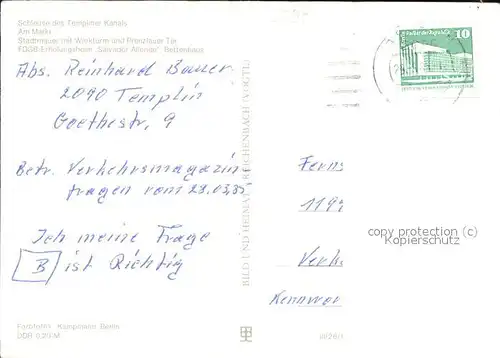 Schleuse des Templiner Kanals
Am Markt
Stadtmauer mit Wiekturm und Prenzlauer Tor
FDGB-Erholungsheim „Salvador Allende" Bettenhaus
Abs. Reinhard Bauer
2090 Templin
Goethestr. 9
Betr. Verkehrsmagazin
fragen vom 23.03.85
Ich meine Frage
B ist Richtig
BILD UND HEIMAT REICHENBACH (VOGTL)
10
Ferns
1199
Verk
Kennwor
copyright (c) for
Kopierschutz
Farbfoto: Kampmann, Berlin
DDR 0,20 M